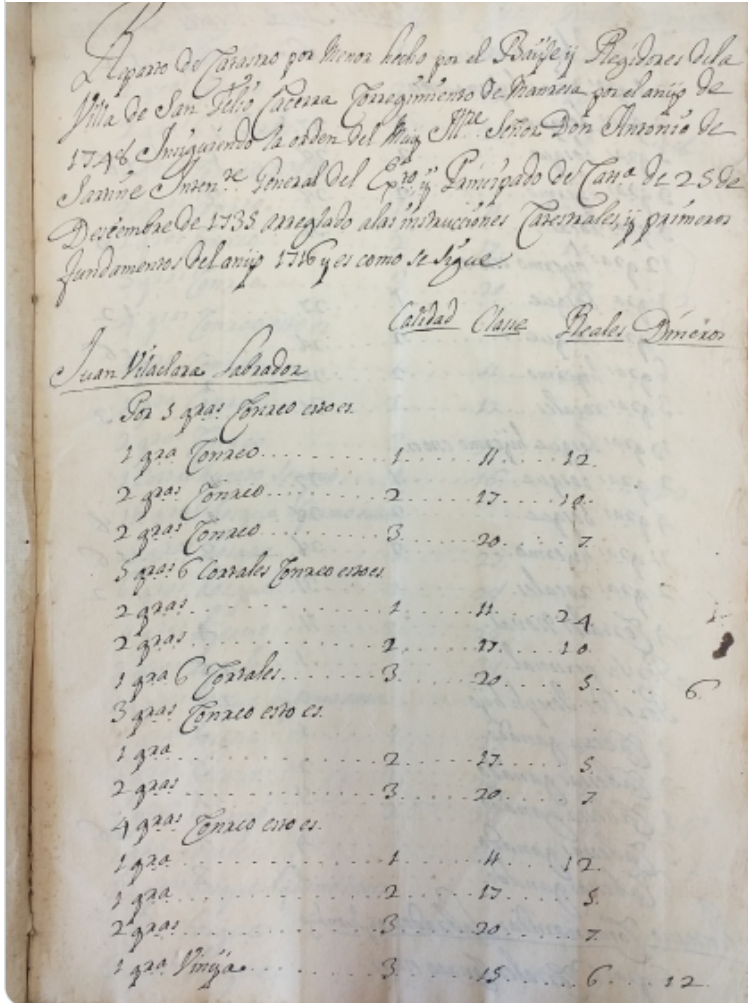 Reparto de Catastro por Menor hecho por el Bayle y Regidores dela
Villa de San Feliô Caserra Corregimiento de Manresa por el anyo de
1748 Insiguiendo la orden del Muy Ill.re Señor Don Antonio de
Sartine Inten.te General del Ex.to y Principado de Cat.a de 25 de
Desiembre de 1735 arreglado alas instrucciones Catestrales, y primeros
fundamentos del anyo 1716 y es como se sigue
Calidad Classe Reales Dineros
Juan Vilaclara Labrador
Por 5 qras Conreo esto es
1 qra Conreo 1 11 12
2 qras Conreo 2 17 10
2 qras Conreo 3 20 7
5 qras 6 Cortales Conreo esto es
2 qras 1 11 24
2 qras 2 17 10
1 qra 6 Cortales 3 20 5 6
3 qras Conreo esto es
1 qra 2 17 5
2 qras 3 20 7
4 qras Conreo esto es
1 qra 1 11 12
1 qra 2 17 5
2 qras 3 20 7
1 qra Vinya 3 15 6 12